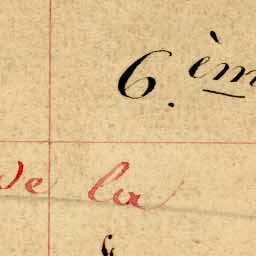 6.èm
de la